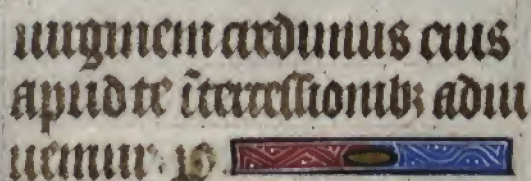 uirginem credimus eius
apud te ītercessionibꝫ adiu
uemur· ꝑ